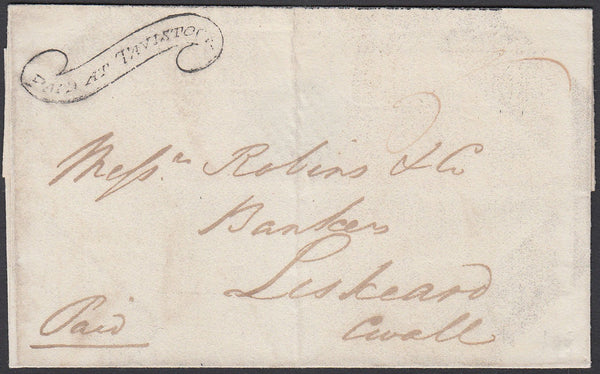 PAID AT TAVISTOCK
Messrs Robins & Co
Bankers
Liskeard
Cwall
Paid